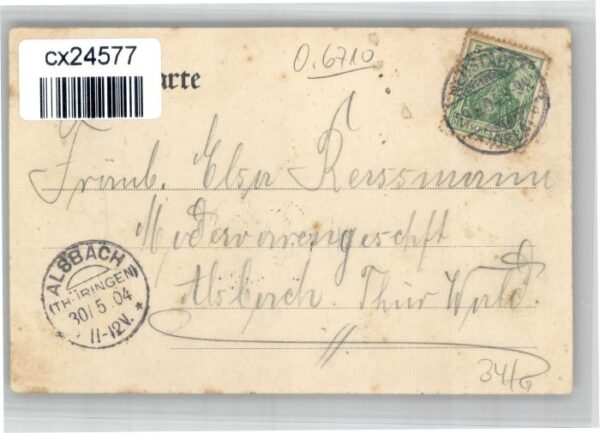 cx24577
O. 6710
arte
Fräul. Elsa Reissmann
Modewarengeschft
Alsbach Thür Wald.
ALSBACH
(THÜRINGEN)
30/5 04
11-12V.
34/6